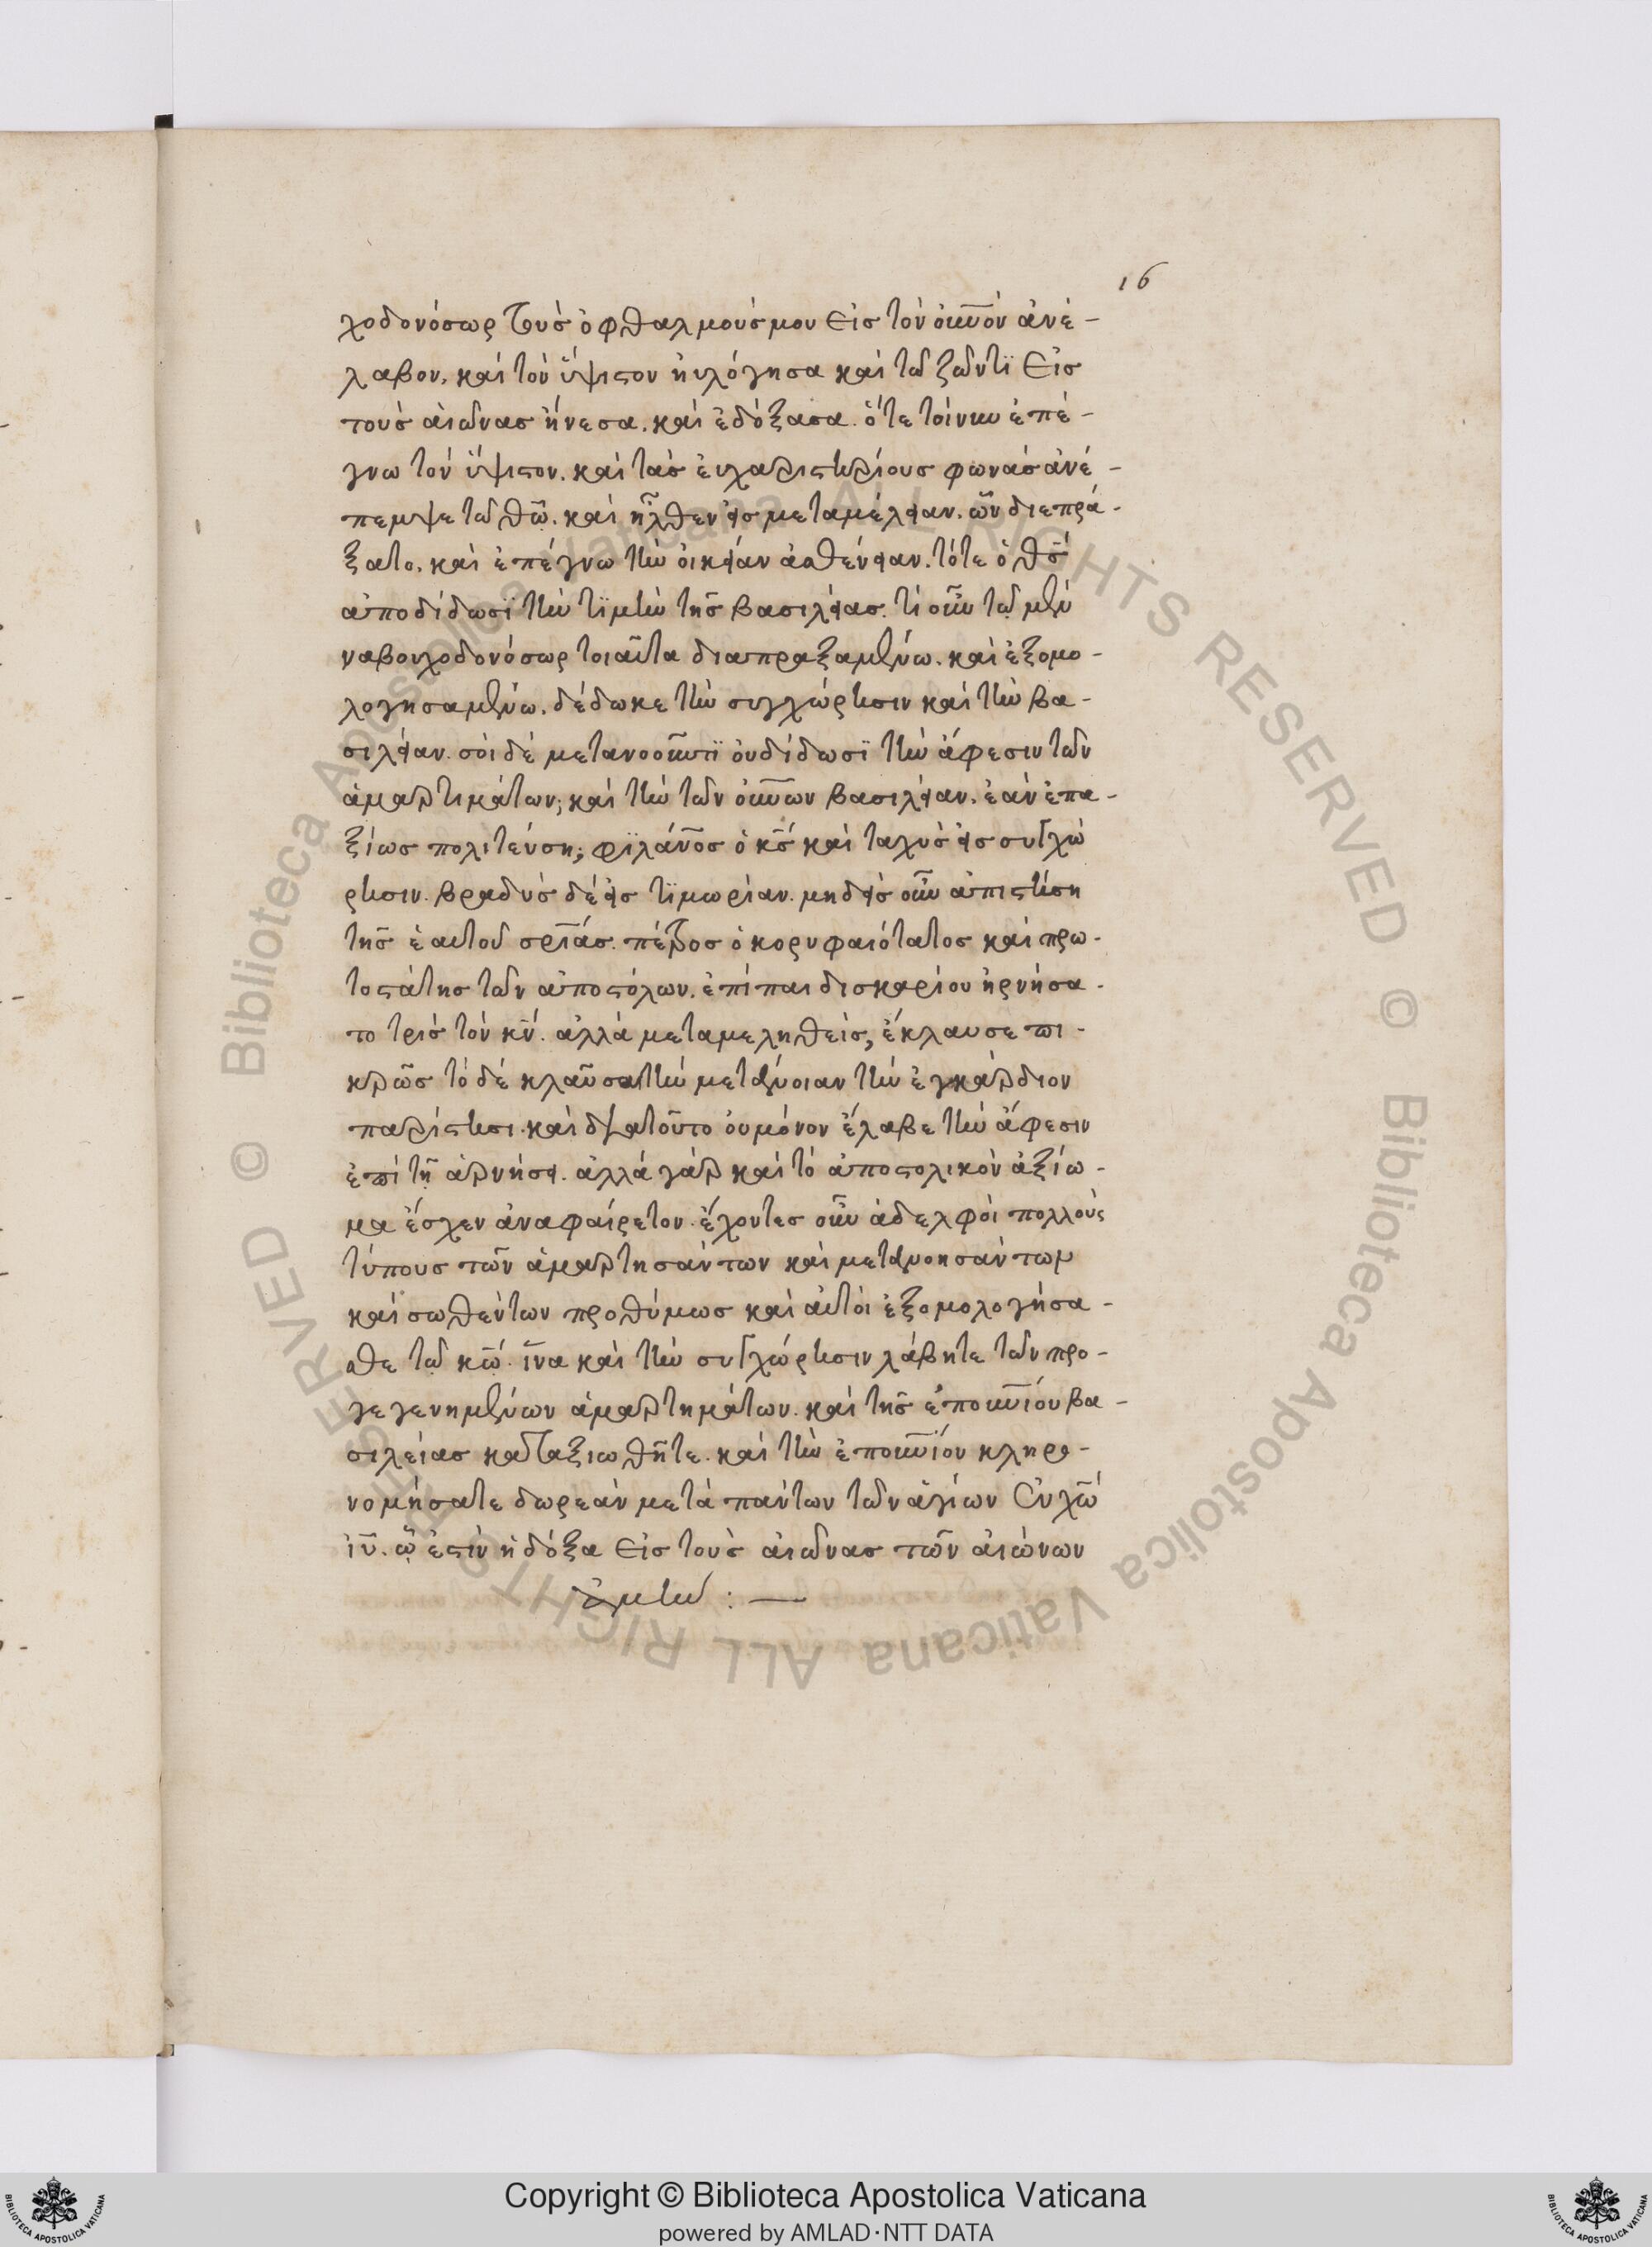 16
χοδονόσωρ τοὺσ ὀφθαλμούσ μου εἰσ τὸν οὐνὸν ἀνέ-
λαβον. καὶ τὸν ὕψιστον ηὐλόγησα καὶ τῶ ζῶντϊ εἰσ
τοὺσ αἰῶνασ ἤνεσα. καὶ ἐδόξασα. ὅτε τοίνυν ἐπέ-
γνω τὸν ὕψιστον. καὶ τὰσ εὐχαριστηρίουσ φωνὰσ ἀνέ-
πεμψε τῶ θῶ. καὶ ἦλθεν εἰσ μεταμέλειαν. ὧν διεπρά-
ξατο. καὶ ἐπέγνω τὴν οἰκείαν ἀσθένειαν. τότε ὁ θσ
ἀποδίδωσϊ τὴν τϊμὴν τῆσ βασιλείασ. τί οὖν τῶ μὲν
ναβουχοδονόσωρ τοιαῦτα διαπραξαμένω. καὶ ἐξομο-
λογησαμένω. δέδωκε τὴν συγχώρησιν καὶ τὴν βα-
σιλείαν. σοὶ δὲ μετανοοῦντϊ οὐ δίδωσϊ τὴν ἄφεσιν τῶν
ἁμαρτημάτων; καὶ τὴν τῶν οὐνῶν βασιλείαν. ἐὰν ἐπα-
ξίωσ πολιτεύση; φϊλάνοσ ὁ κσ καὶ ταχὺσ εἰσ συγχώ
ρησιν. βραδὺσ δὲ εἰσ τϊμωρίαν. μηδεὶσ οὖν ἀπιστήση
τῆσ ἑαυτοῦ σρίασ. πέτροσ ὁ κορυφαιότατοσ καὶ πρω-
τοστάτησ τῶν ἀποστόλων. ἐπὶ παιδισκαρίου ἠρνήσα-
το τρὶσ τὸν κν. ἀλλὰ μεταμεληθεὶσ, ἔκλαυσε πι-
κρῶσ τὸ δὲ κλαῦσαι τὴν μετάνοιαν τὴν ἐγκάρδιον
παρίστησι. καὶ διὰ τοῦτο οὐ μόνον ἔλαβε τὴν ἄφεσιν
ἐπὶ τῆ ἀρνήσει. ἀλλὰ γὰρ καὶ τὸ ἀποστολικὸν ἀξίω-
μα ἔσχεν ἀναφαίρετον. ἔχοντεσ οὖν ἀδελφοὶ πολλοὺς
τύπουσ τῶν ἁμαρτησάντων καὶ μετανοησάντων
καὶ σωθέντων προθύμωσ καὶ αὐτοὶ ἐξομολογήσα-
σθε τῶ κῶ. ἵνα καὶ τὴν συγχώρησιν λάβητε τῶν προ-
γεγενημένων ἁμαρτημάτων. καὶ τῆσ ἐπουνίου βα-
σιλείασ καταξιωθῆτε. καὶ τὴν ἐπουνίον κληρο-
νομήσατε δωρεὰν μετὰ πάντων τῶν ἁγίων ἐν χῶ
ἰυ. ὧ ἐστὶν ἡ δόξα εἰσ τοὺσ αἰῶνασ τῶν αἰώνων
ἀμήν : —
© Biblioteca Apostolica Vaticana ALL RIGHTS RESERVED © Biblioteca Apostolica Vaticana ALL RIGHTS RESERVED
Copyright © Biblioteca Apostolica Vaticana
powered by AMLAD·NTT DATA
BIBLIOTECA APOSTOLICA VATICANA
BIBLIOTECA APOSTOLICA VATICANA